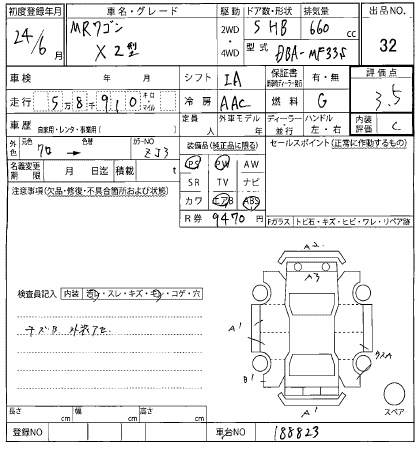 初度登録年月 車名・グレード 駆動 ドア数・形状 排気量 出品NO.
24/6月 MRワゴン X 2型 2WD・4WD 5 HB 660 cc 32
型式 DBA-MF33S
車検 年 月 シフト IA 保証書 有・無 評価点
走行 5万8千910 キロ・マイル 冷房 AAC 燃料 G 3.5
車歴 自家用・レンタ・事業用( ) 定員 人 外車モデル 年 ディーラー・並行 ハンドル 左・右 内装評価 C
外色 元色 クロ → 色替 カラーNO ZJ3 装備品(純正品に限る) セールスポイント(正常に動作するもの)
名義変更期限 月 日迄 積載 t
PS PW AW
SR TV ナビ
カワ エアB ABS
R券 9470円
注意事項(欠品・修復・不具合箇所および状態)
Fガラス トビ石・キズ・ヒビ・ワレ・リペア跡
検査員記入 内装 汚れ・スレ・キズ・キレ・コゲ・穴
キズB 外装アセ
A2
A3
A1
A1
B1
スペア
長さ cm 幅 cm 高さ cm
登録NO 車台NO 188823